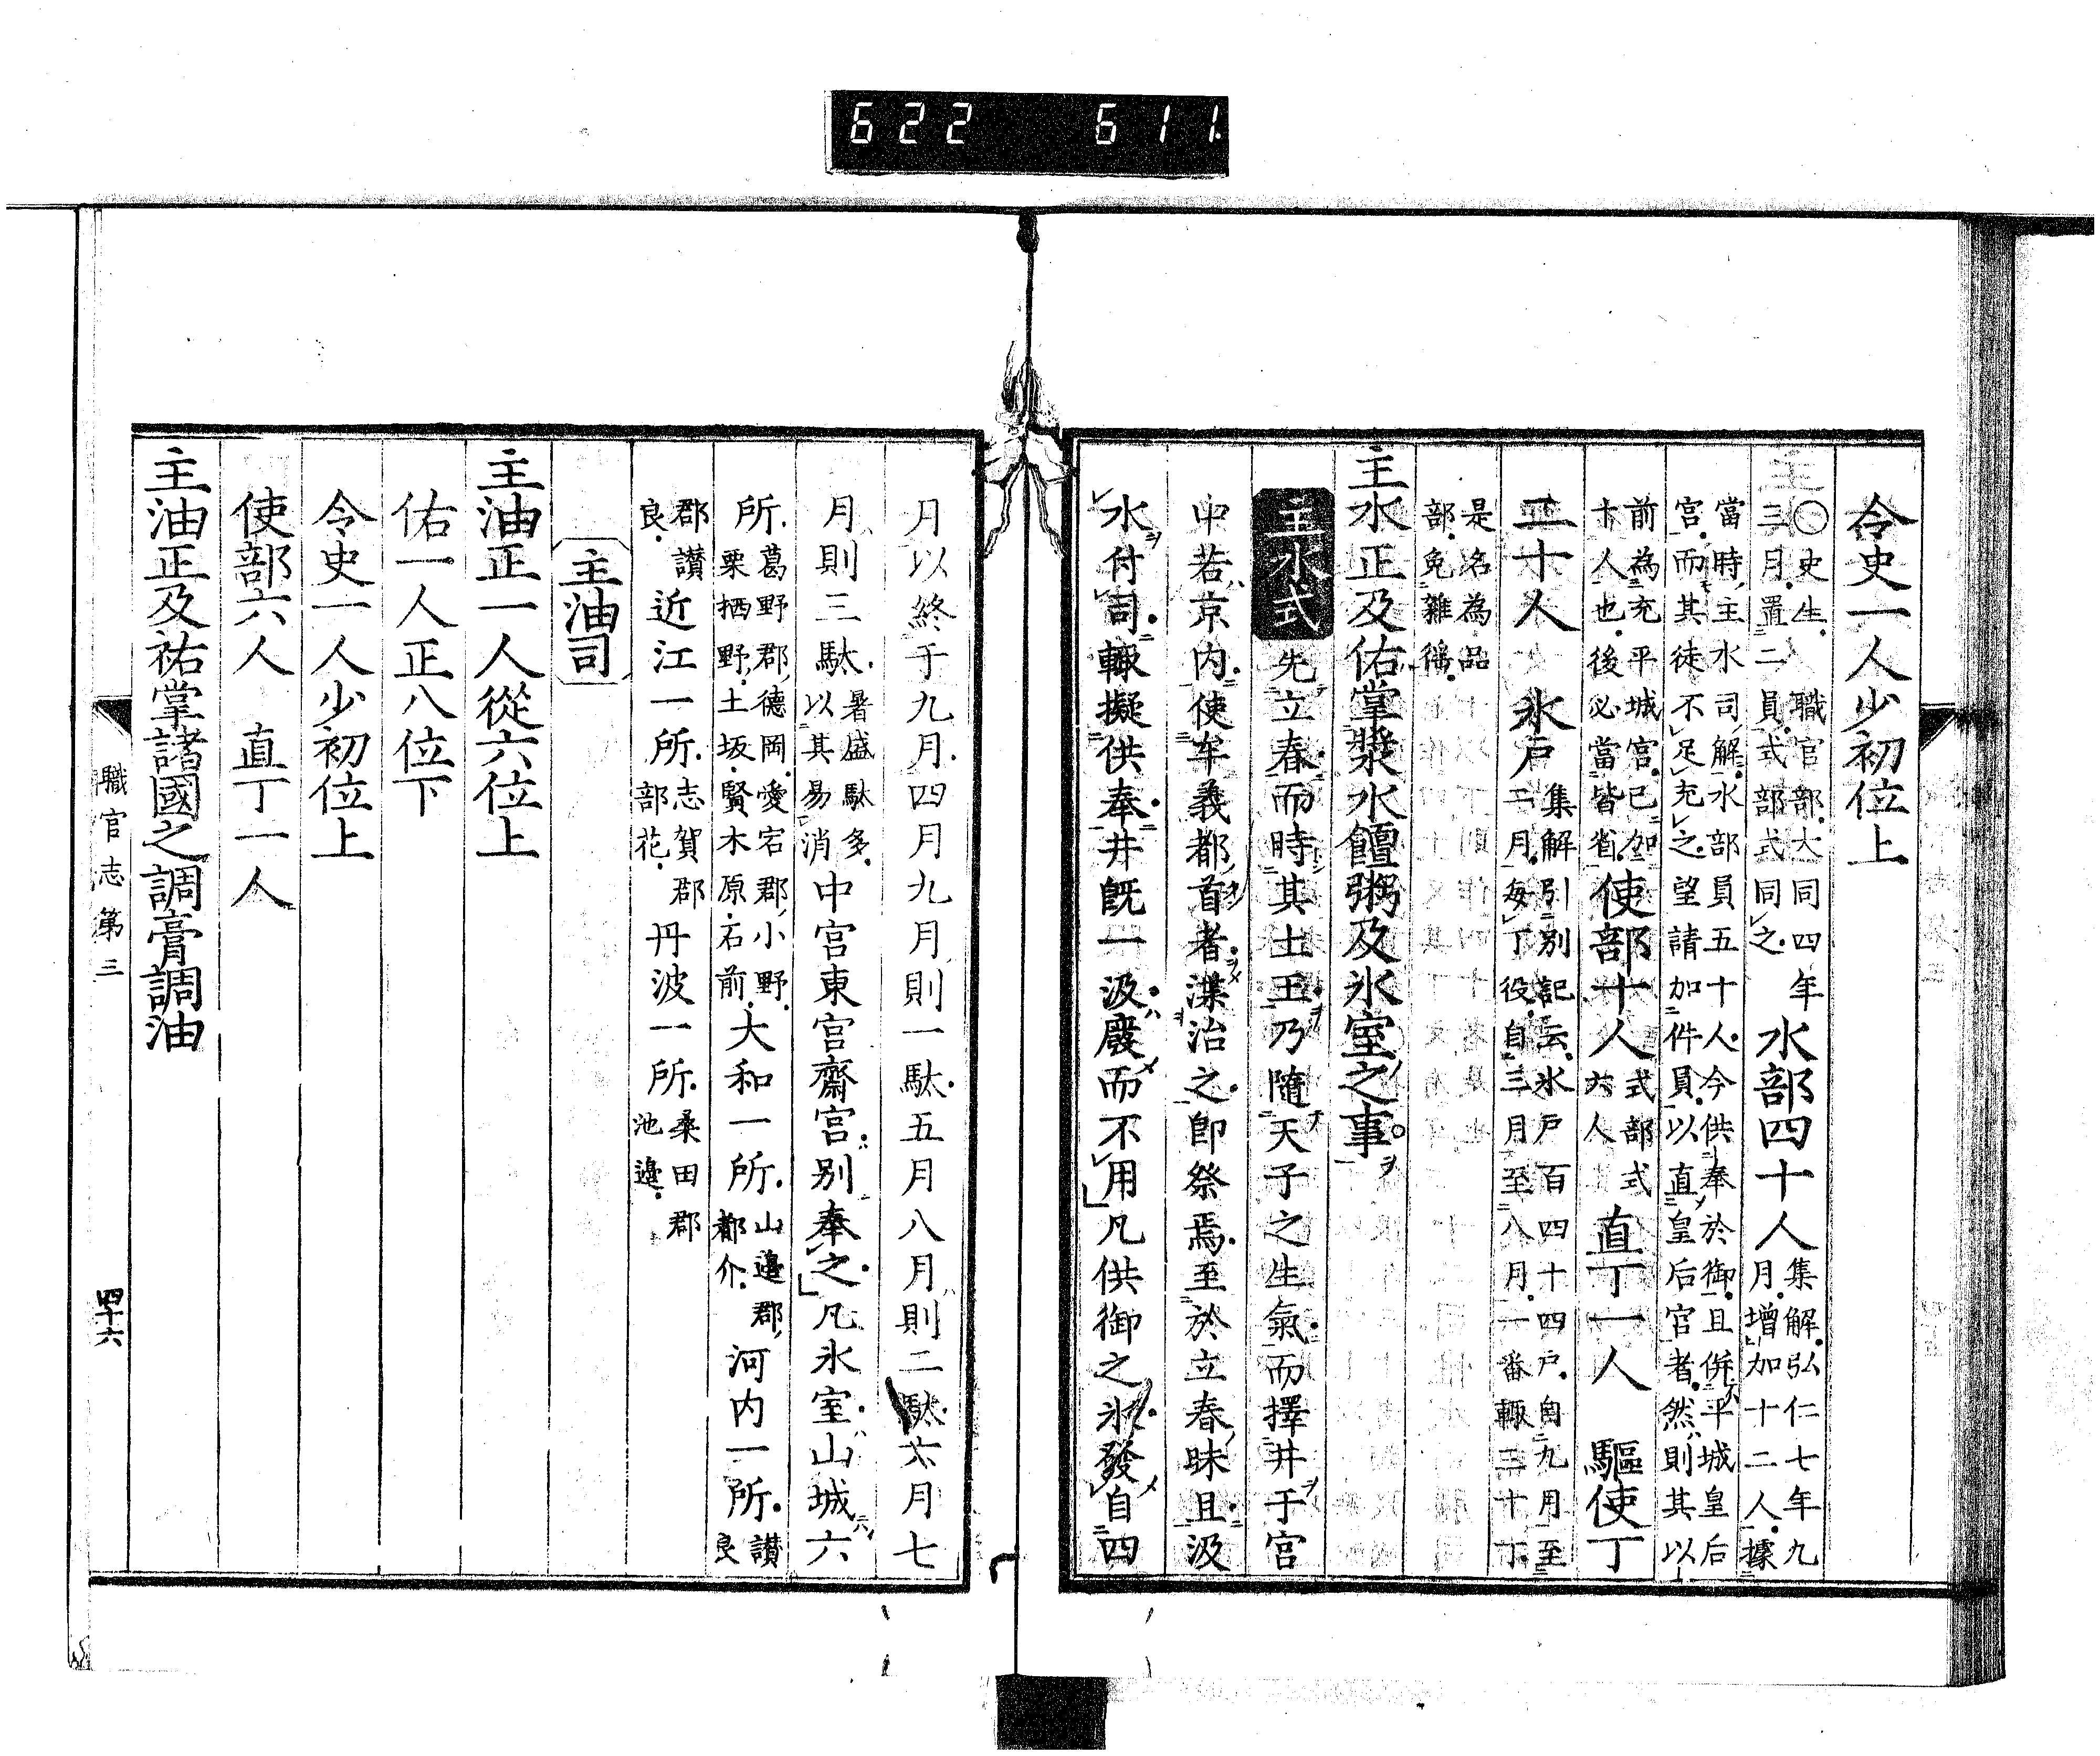 622 611
令史一人少初位上
○史生職官部大同四年
三月置二員式部式同之
水部四十人
集解弘仁七年九
月增加十二人據
當時主水司解水部員五十人今供奉於御且併平城皇后
宮而其徒不足充之望請加件員以直皇后宮者然則其以
前為充平城宮已加
十人也後必當皆省
使部十人
式部式
六人
直丁一人 驅使丁
二十人 氷戶
集解引別記云氷戶百四十四戶自九月至
二月每丁役自三月至八月一番輙三十丁
是名為品
部免雜徭
主水正及佑掌漿水饘粥及氷室之事
主水式 先立春而時其土王乃隨天子之生氣而擇井于宮
中若京內使牟義都首者渫治之卽祭焉至於立春昧旦汲
水付司輙擬供奉井旣一汲廢而不用凡供御之氷發自四
月以終于九月四月九月則一馱五月八月則二馱六月七
月則三馱
暑盛馱多
以其易消
中宮東宮齋宮別奉之凡氷室山城六
所
葛野郡德岡愛宕郡小野
栗栖野土坂賢木原石前
大和一所
山邊郡
都介
河內一所
讃
良
郡讃
良
近江一所
志賀郡
部花
丹波一所
桑田郡
池邊
主油司
主油正一人從六位上
佑一人正八位下
令史一人少初位上
使部六人 直丁一人
主油正及祐掌諸國之調膏調油
職官志第三
四十六